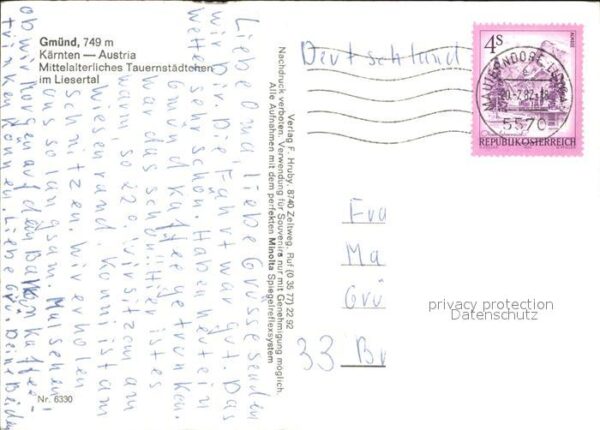 Gmünd, 749 m
Kärnten — Austria
Mittelalterliches Tauernstädtchen
im Liesertal
Liebe Oma, liebe Grüsse senden
wir Dir. Die Fahrt war gut. Das
Wetter sehr schön. Haben heute in
Gmünd Kaffee getrunken.
War das schön!! Hier ist es
warm, so 22°. Wir sitzen am
Wiesenrand. Konni ist am
schnitzen. Wir erholen
uns so langsam. Mal sehen,
ob wir morgen auf dem Balkon Kaffee
trinken können. Liebe Grü. Deine Beiden
Nr. 6330
Verlag F. Hruby, 8740 Zeltweg, Ruf (0 35 77) 22 92
Nachdruck verboten. Verwendung für Souvenirs nur mit Genehmigung möglich.
Alle Aufnahmen mit dem perfekten Minolta Spiegelreflexsystem
Deutschland
4S
5570
REPUBLIK ÖSTERREICH
Ma
Grü
33 Br
privacy protection
Datenschutz